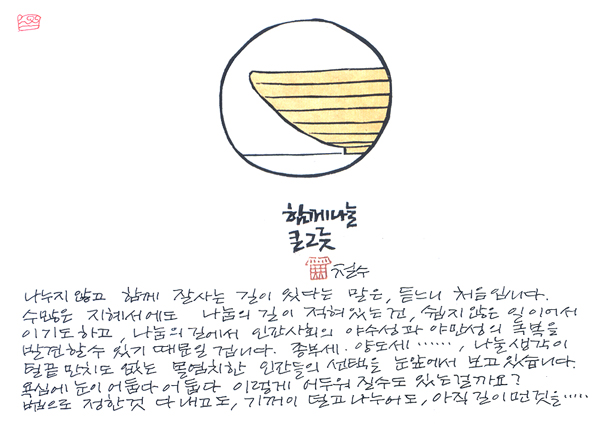 함께 나눌
큰 그릇
철수
나누지 않고 함께 잘사는 길이 있다는 말은, 듣느니 처음입니다.
수많은 지혜서에도 나눔의 길이 적혀있는 건, 쉽지 않은 일이어서
이기도 하고, 나눔의 길에서 인간사회의 야수성과 야만성의 극복을
발견할 수 있기 때문일 겁니다. 종부세·양도세 ······, 나눌 생각이
털끝만치도 없는 몰염치한 인간들의 선택을 눈앞에서 보고 있습니다.
욕심에 눈이 어둡다 어둡다 이렇게 어두워 질수도 있는걸까요?
법으로 정한것 다 내고도, 기꺼이 덜고 나누어도, 아직 길이 먼 것을·····